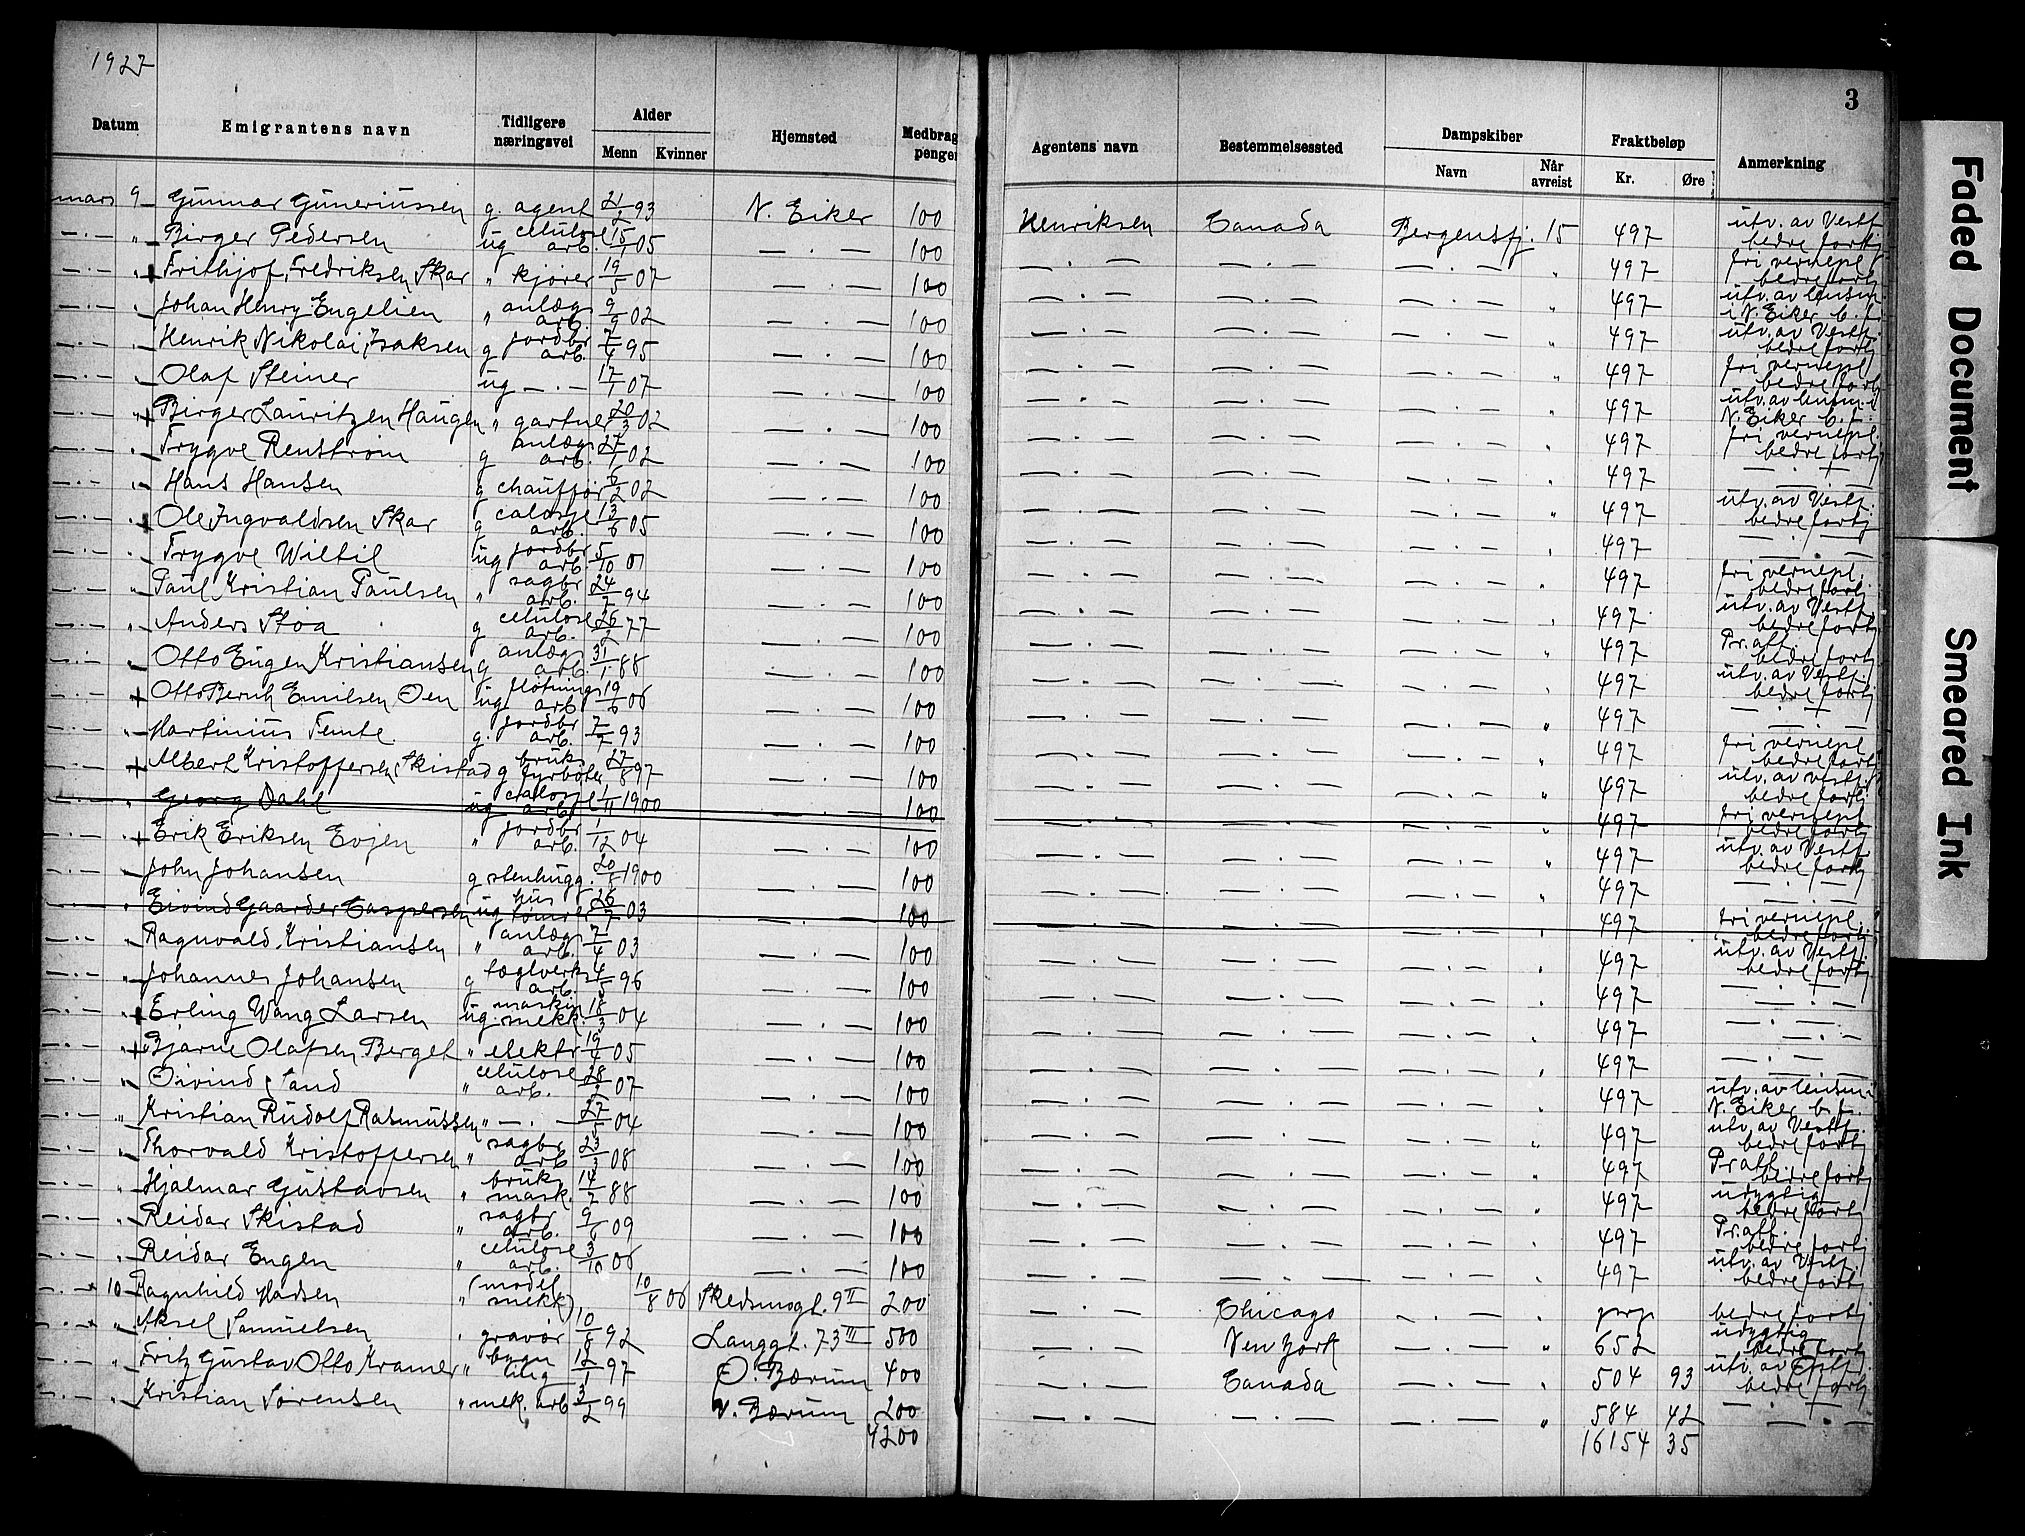 1927
3
Datum Emigrantens navn Tidligere næringsvei Alder Menn Kvinner Hjemsted Medbrag penger Agentens navn Bestemmelsessted Dampskiber Navn Når avreist Fraktbeløp Kr. Øre Anmerkning
mars 9 Gunnar Guneriussen g agent 21/2 93 N. Eiker 100 Henriksen Canada Bergensfj. 15 497 utv. av Vestf. bedre fortj
—.— " Birger Pedersen ug celulose arb. 15/1 05 —.— 100 —.— —.— —.— " 497 fri vernepl bedre fortj
—.— " Frithjof Fredriksen Skar " kjører 19/5 07 —.— 100 —.— —.— —.— " 497 utv. av lensm i N. Eiker b. f.
—.— " Johan Henry Engelien " anlæg arb. 9/9 02 —.— 100 —.— —.— —.— " 497 utv. av Vestf. bedre fortj
—.— " Henrik Nikolai Isaksen g jordbr arb. 7/4 95 —.— 100 —.— —.— —.— " 497 fri vernepl bedre fortj
—.— " Olaf Steiner ug —.— 17/1 07 —.— 100 —.— —.— —.— " 497 utv. av lensm. i N. Eiker b. f.
—.— " Birger Lauritzen Haugen " gartner 20/3 02 —.— 100 —.— —.— —.— " 497 fri vernepl. bedre fortj
—.— " Trygve Renstrøm g anlægs arb. 27/1 02 —.— 100 —.— —.— —.— " 497 —.—
—.— " Hans Hansen g chauffør 6/2 02 —.— 100 —.— —.— —.— " 497 utv. av Vestf. bedre fortj
—.— " Ole Ingvaldsen Skar g calose arb. 13/6 05 —.— 100 —.— —.— —.— " 497 —.—
—.— " Trygve Wiltil ug jordbr arb. 5/10 01 —.— 100 —.— —.— —.— " 497 fri vernepl. bedre fortj
—.— " Paul Kristian Paulsen " sagbr arb. 24/7 94 —.— 100 —.— —.— —.— " 497 utv. av Vestf. bedre fortj
—.— " Anders Stoa g celulose arb. 26/2 77 —.— 100 —.— —.— —.— " 497 Pr. att. bedre fortj
—.— " Otto Eugen Kristiansen g anlæg arb. 31/1 88 —.— 100 —.— —.— —.— " 497 utv. av Vestf. bedre fortj
—.— " Otto Bernh Emilsen Øen ug fløtnings arb 19/6 06 —.— 100 —.— —.— —.— " 497 —.—
—.— " Martinius Temte g. jordbr arb. 7/7 93 —.— 100 —.— —.— —.— " 497 fri vernepl bedre fortj
—.— " Albert Kristoffersen Skistad g bruks fyrbøter 27/8 97 —.— 100 —.— —.— —.— " 497 utv. av vestf. bedre fortj
—.— " Georg Dahl ug calose arb. 1/11 1900 100 —.— —.— —.— " 497 fri vernepl bedre fortj
—.— " Erik Eriksen Evjen " jordbr arb. 1/12 04 —.— 100 —.— —.— —.— " 497 utv. av Vestf. bedre fortj
—.— " John Johansen g stenhugg. 20/8 1900 —.— 100 —.— —.— —.— " 497 —.—
—.— " Eivind Gaarder Caspersen ug hus tømrer 26/7 03 —.— 100 —.— —.— —.— " 497 fri vernepl. bedre fortj
—.— " Ragnvald Kristiansen " anlæg arb. 7/4 03 —.— 100 —.— —.— —.— " 497 utv. av Vestf. bedre fortj
—.— " Johannes Johansen g teglverk arb. 4/5 96 —.— 100 —.— —.— —.— " 497 —.—
—.— " Erling Wang Larsen ug. maskin mekk. 18/3 04 —.— 100 —.— —.— —.— " 497 —.—
—.— " Bjarne Olafsen Berget " elektr 19/4 05 —.— 100 —.— —.— —.— " 497 —.—
—.— " Øivind Sand " celulose arb. 28/2 07 —.— 100 —.— —.— —.— " 497 utv. av lensm i N. Eiker b. f.
—.— " Kristian Rudolf Rasmussen " —.— 27/5 04 —.— 100 —.— —.— —.— " 497 utv. av Vestf. bedre fortj
—.— " Thorvald Kristoffersen " sagbr arb 23/3 08 —.— 100 —.— —.— —.— " 497 Pr att. bedre fortj
—.— " Hjalmar Gustavsen " bruks mask. 14/7 88 —.— 100 —.— —.— —.— " 497 udygtig bedre fortj
—.— " Reidar Skistad " sagbr arb. 9/6 09 —.— 100 —.— —.— —.— " 497 Pr. att. bedre fortj
—.— " Reidar Engen " celulose arb. 3/10 06 —.— 100 —.— —.— —.— " 497 utv. av Vestf. bedre fortj
" 10 Ragnhild Madsen " (model mekk) 10/8 06 Skedsmogt. 9 II 200 —.— Chicago —.— " prp bedre fortj
" " Aksel Samuelsen " gravør 10/8 92 Langgt. 73 III 500 —.— New York —.— " 652 udygtig bedre fortj
—.— " Fritz Gustav Otto Kramer " bygn 12/1 97 Ø. Bærum 400 —.— Canada —.— " 504 93 utv. av Østf. bedre fortj
—.— " Kristian Sørensen " mek. arb 3/2 99 V. Bærum 200 —.— —.— —.— " 584 42 —.—
4200 16154 35
Faded Document
Smeared Ink